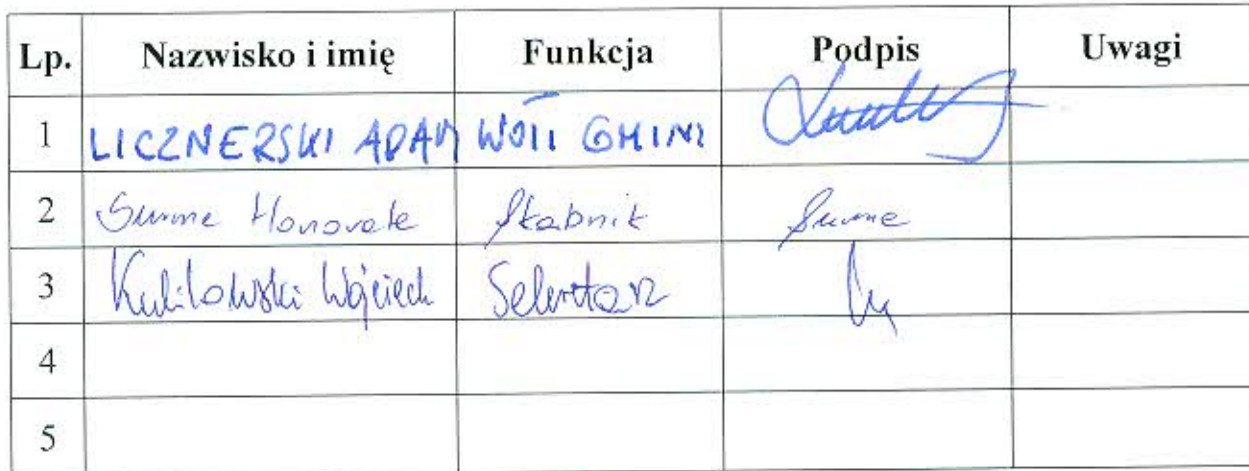 Lp. Nazwisko i imię Funkcja Podpis Uwagi
1 LICZNERSKI ADAM WÓJT GMINY
2 Honorata Skarbnik
3 Wojciech Sekretarz
4
5